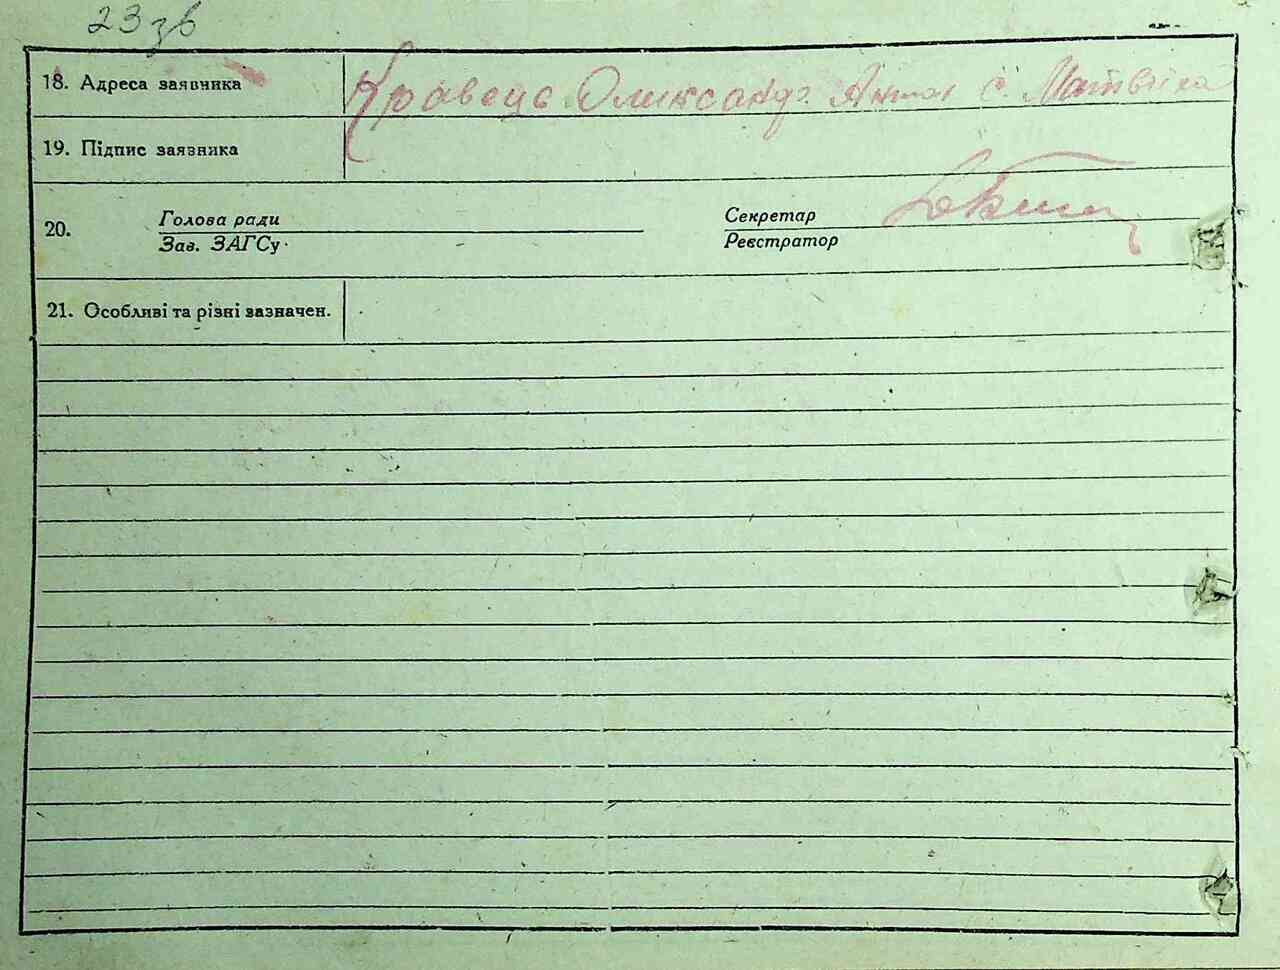 23 зв
18. Адреса заявника Кравець Олександр Антон с. Матвіїха
19. Підпис заязника
20. Голова ради Секретар
Зав. ЗАГСу Реєстратор
21. Особливі та різні зазначен.